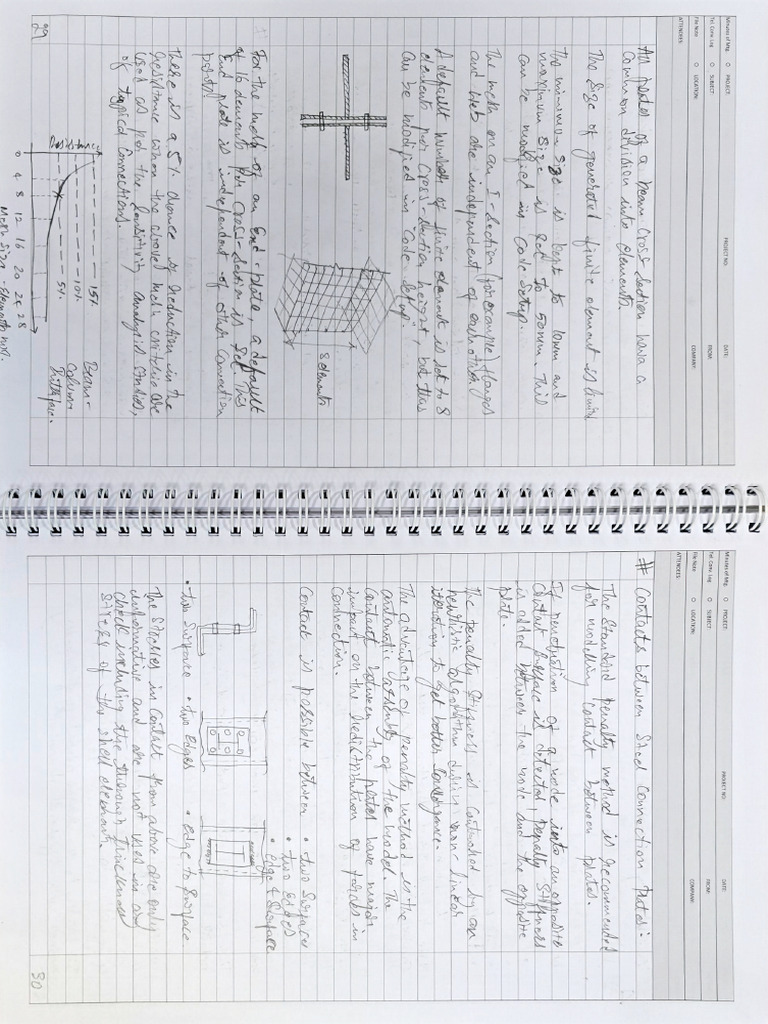 Minutes of Mtg. O PROJECT: PROJECT NO: DATE:
Tel. Conv. Log O SUBJECT: FROM:
File Note O LOCATION: COMPANY:
ATTENDEES:
All plates of a beam cross-section have a
common division into elements.
The size of generated finite element is limit
The minimum size is kept to 10mm and
maximum size is set to 50mm. This
can be modified in code setup.
The mesh on an I-section (for example) flanges
and web are independent of each other.
A default number of finite element is set to 8
elements per cross-section height, but this
can be modified in "Code Setup".
8 elements
For the mesh of an End-plate, a default
of 16 elements per cross-section is set. This
End plate is independent of other connection
parts.
There is a 5% chance of reduction in the
resistance when the above mesh criteria are
used as per the sensitivity analysis studies,
of typical connections.
Resistance
15%
10%
5%
Beam-
Column
0 4 8 12 16 20 24 28
Mesh size - Elements no.
29
Minutes of Mtg. O PROJECT: PROJECT NO: DATE:
Tel. Conv. Log O SUBJECT: FROM:
File Note O LOCATION: COMPANY:
ATTENDEES:
# Contacts between Steel Connection Plates:
The standard penalty method is recommended
for modelling contact between plates.
If penetration of a node into an opposite
contact surface is detected, penalty stiffness
is added between the node and the opposite
plate.
The penalty stiffness is controlled by an
heuristic algorithm during non-linear
iteration to get better convergence.
The advantage of penalty method is the
automatic assembly of the model. The
contact between the plates have major
impact on the redistribution of forces in
connection.
Contact is possible between • two surfaces
• two edges
• edge & surface
• two surface • two edges • edge to surface.
The stresses in contact from above are only
informative and are not used in any
check including the through thickness
stress of the shell element.
30